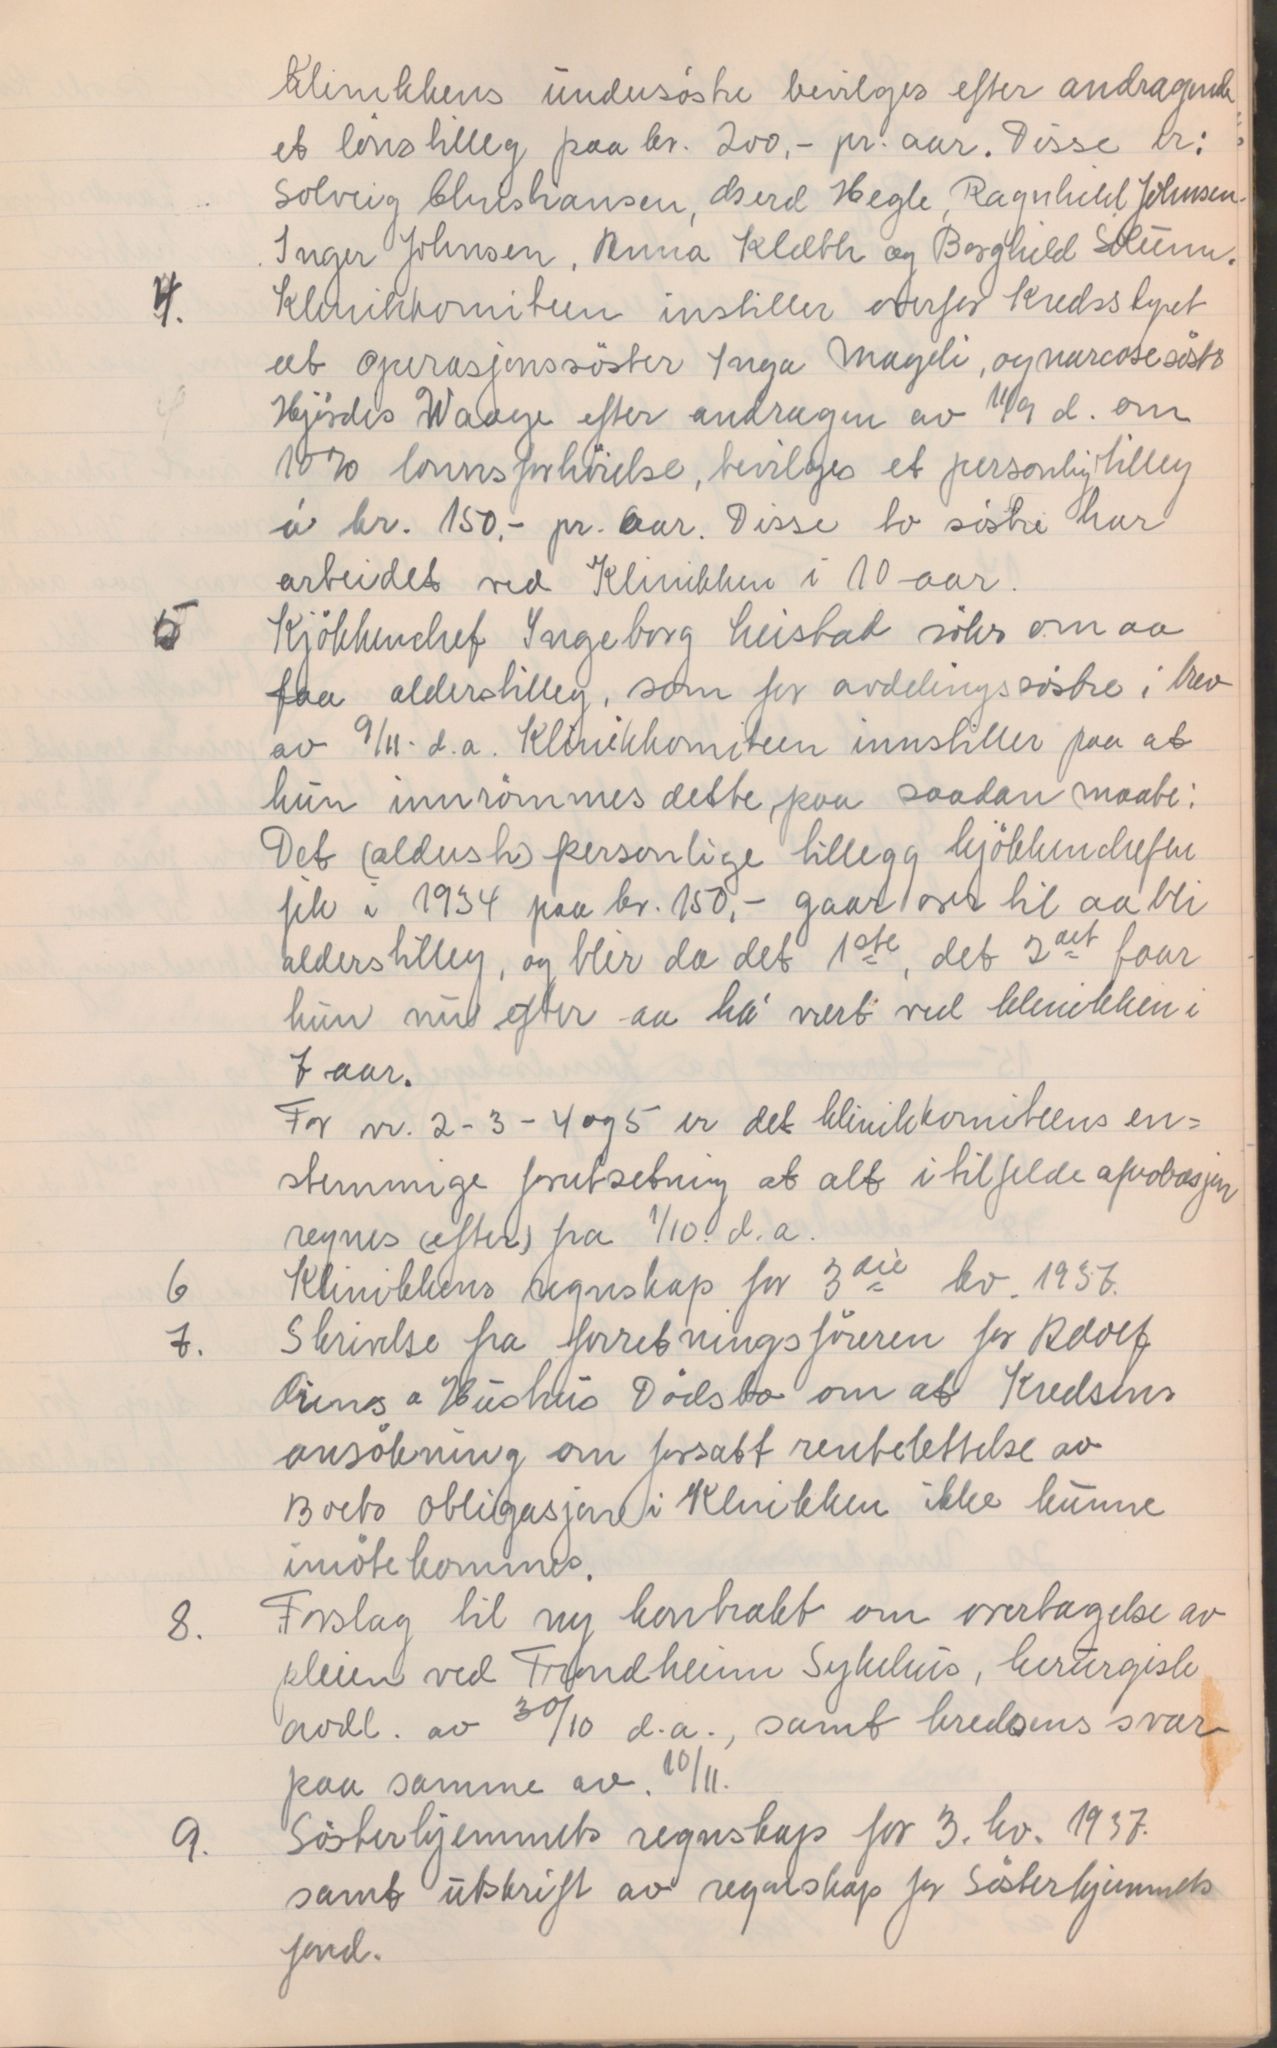 Klinikkens undersöstre bevilges efter andragende
et lönstilleg paa kr. 200,- pr. aar. Disse er:
Solveig Christiansen, Gerd Hegle, Ragnhild Johnsen
Inger Johnsen, Anna Klæth og Borghild Solum.
4. Klinikkomiteen instiller overfor Kredsstyret
at operasjonssöster Inga Mageli, og narcosesöster
Hjördis Waage efter andragen av 11/9 d. om
10% lonnsforhöielse, bevilges et personlig tilleg
á kr. 150,- pr. aar. Disse to söstre har
arbeidet ved Klinikken i 10 aar.
5 Kjökkenchef Ingeborg Heistad söker om aa
faa alderstilleg, som for avdelingssöstre i brev
av 9/11- d.a. Klinikkomiteen innstiller paa at
hun innrömmes dette, paa saadan maate:
Det (alderst) personlige tillegg kjökkenchefen
fik i 1934 paa kr. 150,- gaar over til aa bli
alderstilleg, og blir da det 1ste, det 2det faar
hun nu efter aa ha vært ved klinikken i
7 aar.
For nr. 2-3-4 og 5 er det klinikkomiteens en=
stemmige forutsetning at alt i tilfelde aprobasjon
regnes (efter) fra 1/10. d.a.
6 Klinikkens regnskap for 3die kv. 1937.
7. Skrivelse fra forretningsföreren for Adolf
Öiens a Hushus Dödsbo om at Kredsens
ansökning om forsatt rentelettelse av
Boets obligasjon i Klinikken ikke kunne
imötekommes.
8. Forslag til ny kontrakt om overtagelse av
pleien ved Trondheim Sykehus, kirurgisk
avdl. av 30/10 d.a., samt kredsens svar
paa samme av. 10/11.
9. Sösterhjemmets regnskap for 3. kv. 1937.
samt utskrift av regnskap for Sösterhjemmets
fond.